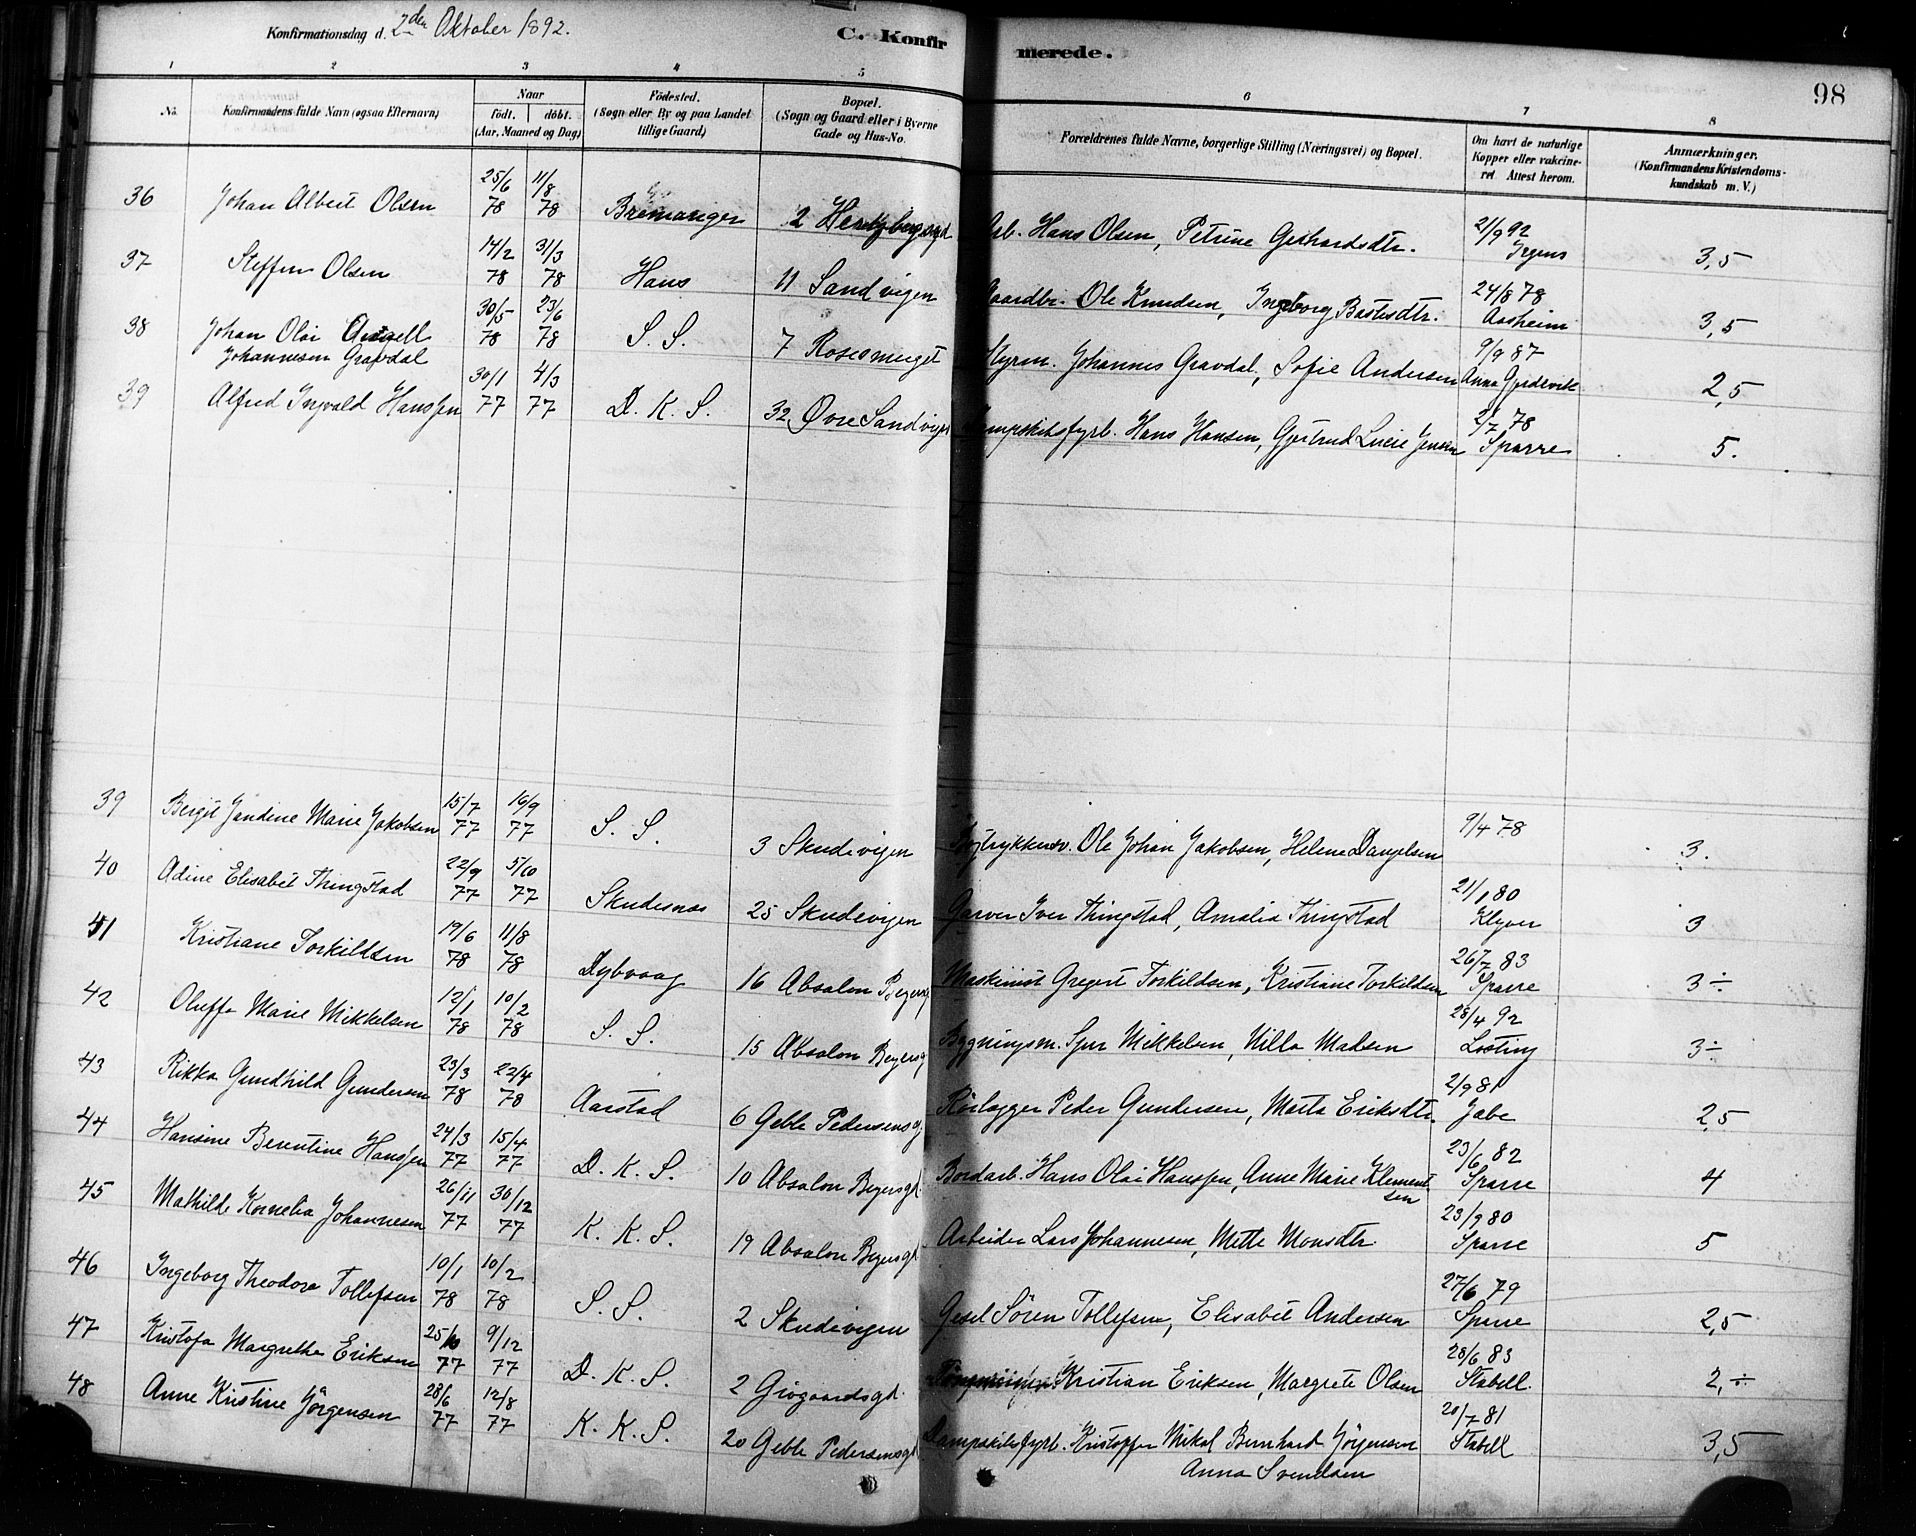 Konfirmationsdag d. 2den Oktober 1892.
C. Konfirmerede.
98
1 2 3 4 5 6 7 8
No. Konfirmandens fulde Navn (ogsaa Efternavn) Naar født. døbt. (Aar, Maaned og Dag) Fødested. (Sogn eller By og paa Landet tillige Gaard) Bopæl. (Sogn og Gaard eller i Byerne Gade og Hus-No. Forældrenes fulde Navne, borgerlige Stilling (Næringsvei) og Bopæl. Om havt de naturlige Kopper eller vaccineret. Attest herom. Anmærkninger. (Konfirmandens Kristendomskundskab m. V.)
36 Johan Albert Olsen 25/6 78 11/8 78 Bremanger 2 Arb. Hans Olsen, Petrine Gerhardsdtr. 21/9 92 Irgens 3,5
37 Steffen Olsen 14/2 78 31/3 78 Haus 11 Sandvigen Gaardbr. Ole Knudsen, Ingeborg Bastesdtr. 24/8 78 Aasheim 3,5
38 Johan Olai Angell Johannesen Gravdal 30/5 78 23/6 78 S. S. 7 Rosesmuget Styrm. Johannes Gravdal, Sofie Andersen 9/9 87 Anna Gjerdevik 2,5
39 Alfred Ingvald Hanssen 30/1 77 4/3 77 D. K. S. 32 Øvre Sandvigen Dampskibsfyrb. Hans Hansen, Gjertrud Lucie Jensen 2/7 78 Sparre 5.
39 Bergit Jandine Marie Jakobsen 15/7 77 16/9 77 S. S. 3 Skudevigen Ole Johan Jakobsen, Helene Danielsen 9/4 78 3.
40 Adine Elisabet Thingstad 22/9 77 5/10 77 Skudesnæs 25 Skudevigen Garver Iver Thingstad, Amalia Thingstad 21/1 80 Klyver 3
41 Kristiane Torkildsen 19/6 78 11/8 78 Dybvaag 16 Absalon Beyersg Maskinist Gregert Torkildsen, Kristiane Torkildsen 26/7 83 Sparre 3÷
42 Oluffa Marie Mikkelsen 12/1 78 10/2 78 S. S. 15 Absalon Beyersg Bygningsm. Sjur Mikkelsen, Nilla Madsen 28/4 92 Losting 3÷
43 Rikka Gundhild Gundersen 23/3 78 22/4 78 Aarstad 6 Geble Pedersensg. Rørlægger Peder Gundersen, Marta Eriksdtr. 2/9 81 Jabe 2,5
44 Hansine Berentine Hanssen 24/3 77 15/4 77 D. K. S. 10 Absalon Beyersgd. Bordarb. Hans Olai Hanssen, Anne Marie Klementsen 23/6 82 Sparre 4
45 Mathilde Kornelia Johannesen 26/11 77 30/12 77 K. K. S. 19 Absalon Beyersgd. Arbeider Lars Johannesen, Mette Monsdtr. 23/9 80 Sparre 5
46 Ingeborg Theodora Tollefsen 10/1 78 10/2 78 S. S. 2 Skudevigen Gesel Sören Tollefsen, Elisabet Andersen 27/6 79 Sparre 2,5
47 Kristofa Margrethe Eriksen 25/10 77 9/12 77 D. K. S. 2 Grøgaardsgd. Kristian Eriksen, Margrete Olsen 28/6 83 Stabell 2,÷
48 Anne Kristine Jörgensen 28/6 77 12/8 77 K. K. S. 20 Geble Pedersensgd. Dampskibsfyrb. Kristoffer Mikal Bernhard Jörgensen Anna Svendsen 20/7 81 Stabell 3,5